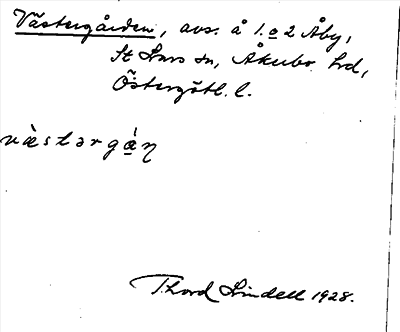 Västergården, avs. å 1. o 2 Åby,
St Lars sn, Åkerbo hd,
Östergötl. l.
væ̀stərgán
Thord Lindell 1928.